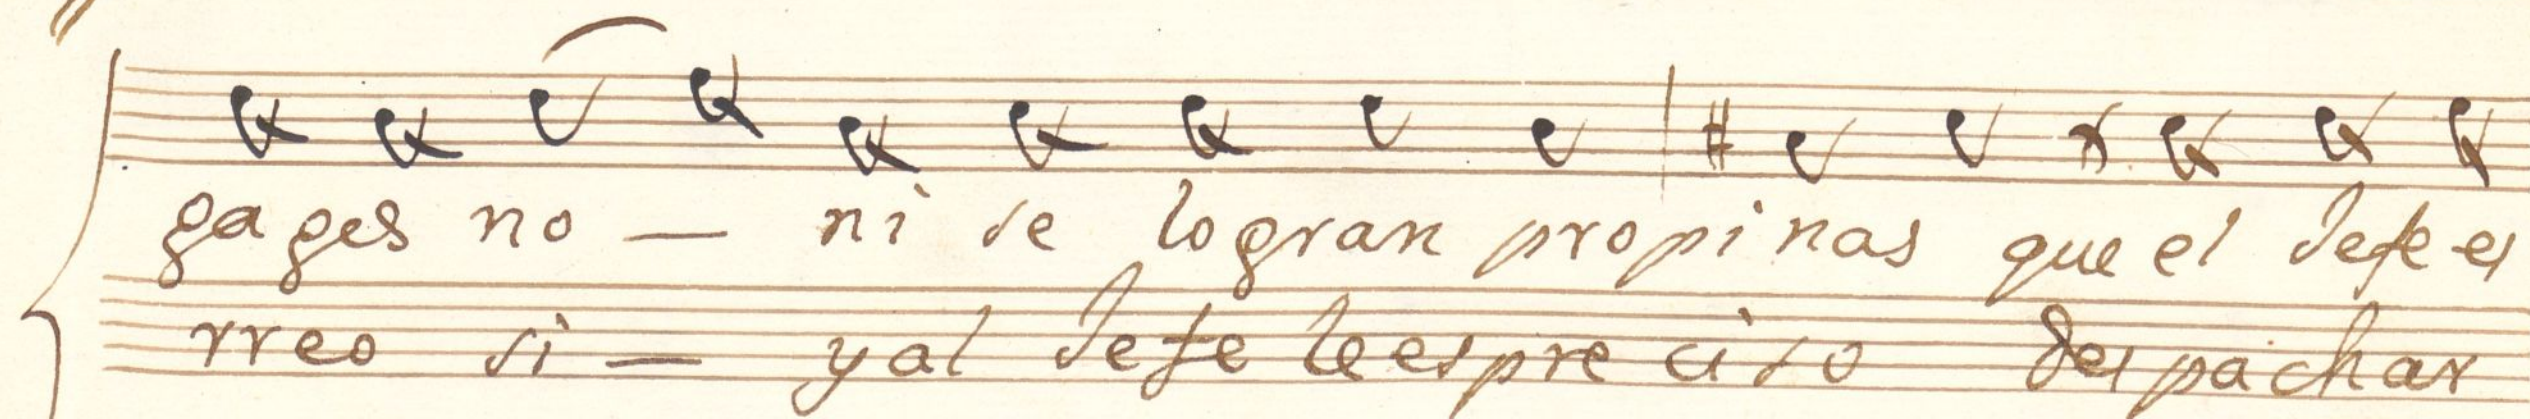 gages no — ni se logran propinas que el Jefe es
rreo si — y al Jefe le es preciso despachar